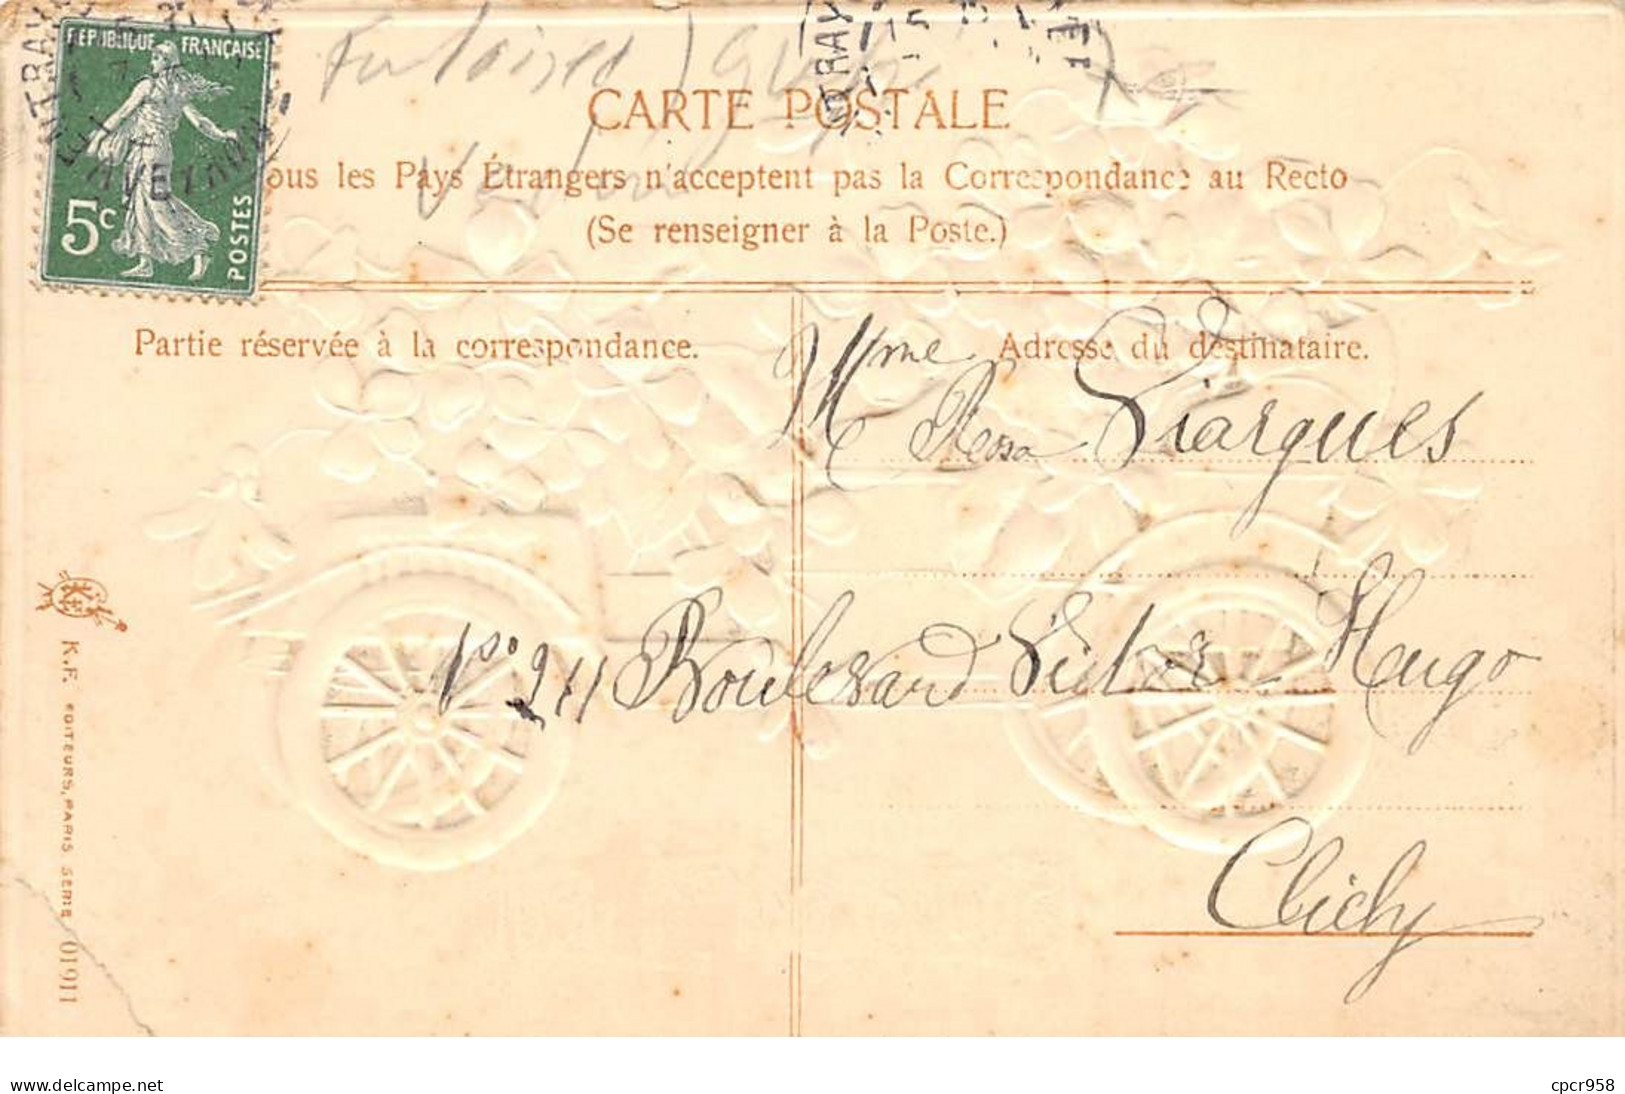 RÉPUBLIQUE FRANÇAISE
5c
POSTES
AVEYRON
CARTE POSTALE
ous les Pays Étrangers n'acceptent pas la Correspondance au Recto
(Se renseigner à la Poste.)
Partie réservée à la correspondance.
Adresse du destinataire.
Mme Rosa Liargues
No 24 Boulevard Victor Hugo
Clichy
K.F. EDITEURS, PARIS SERIE 01911
www.delcampe.net
cpcr958